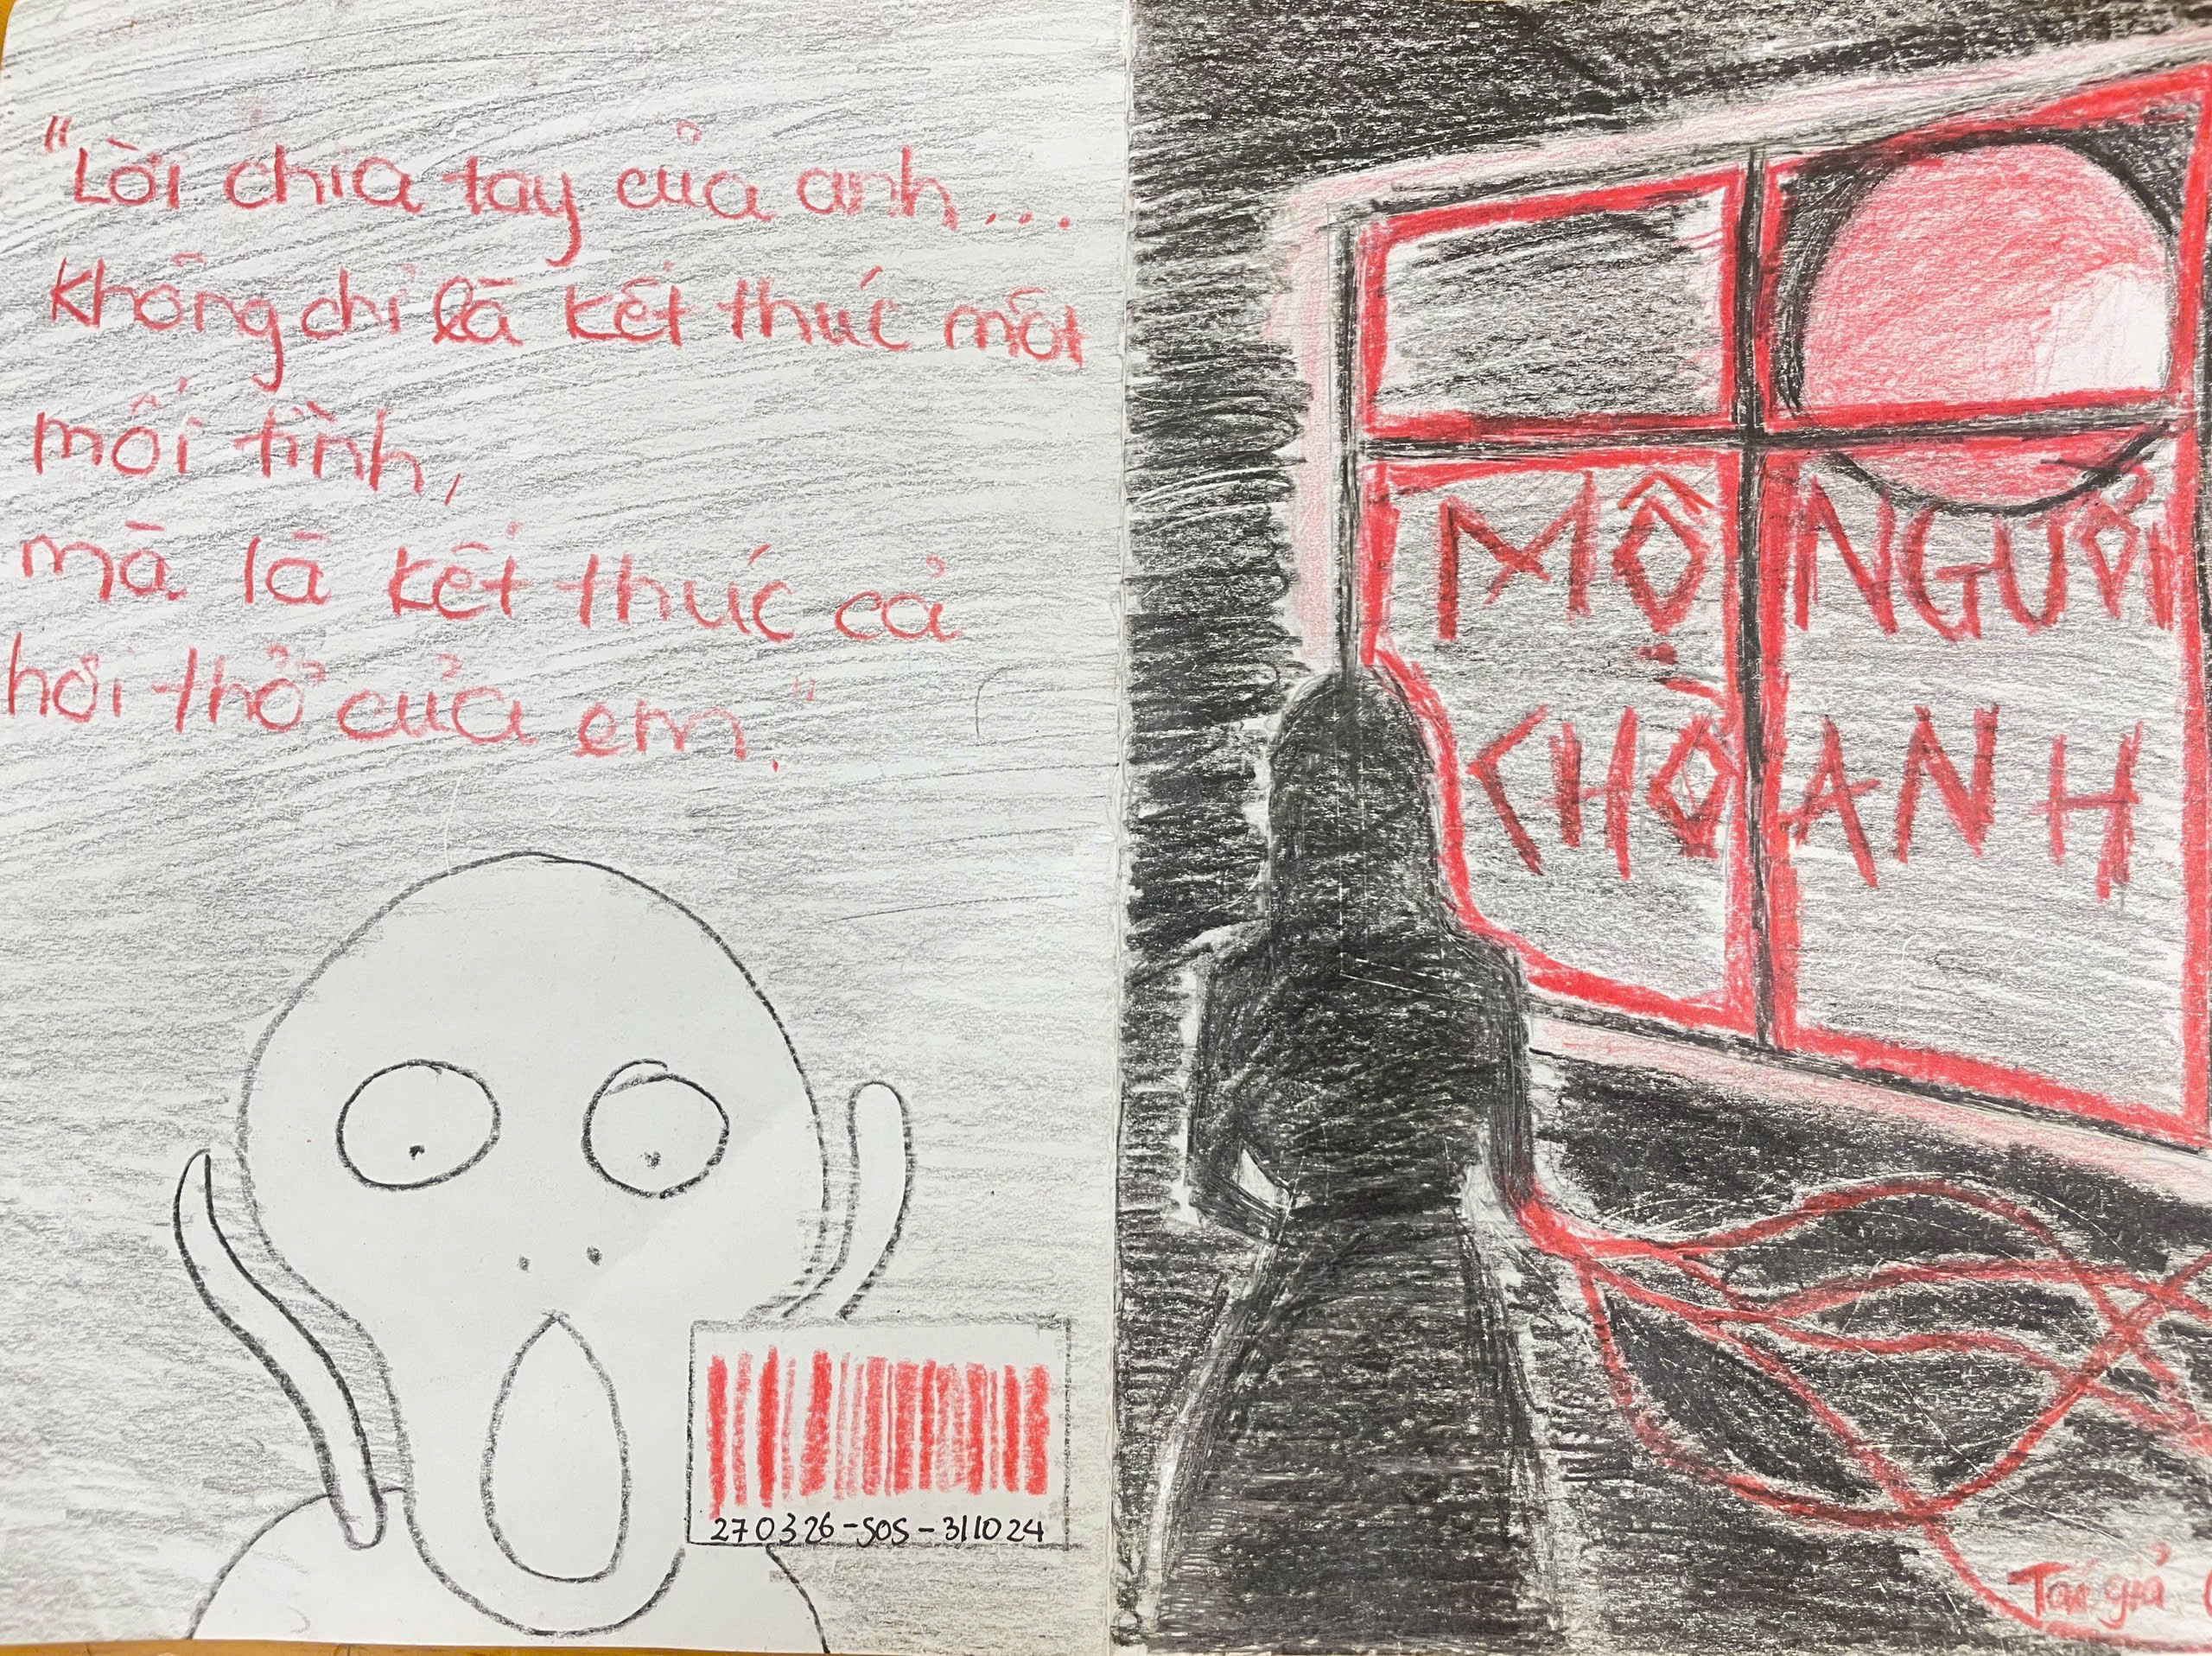 "Lời chia tay của anh...
Không chỉ là kết thúc một
mối tình,
mà là kết thúc cả
hơi thở của em."
270326-SOS-311024
MỘ NGƯỜI
CHỜ ANH
Tác giả